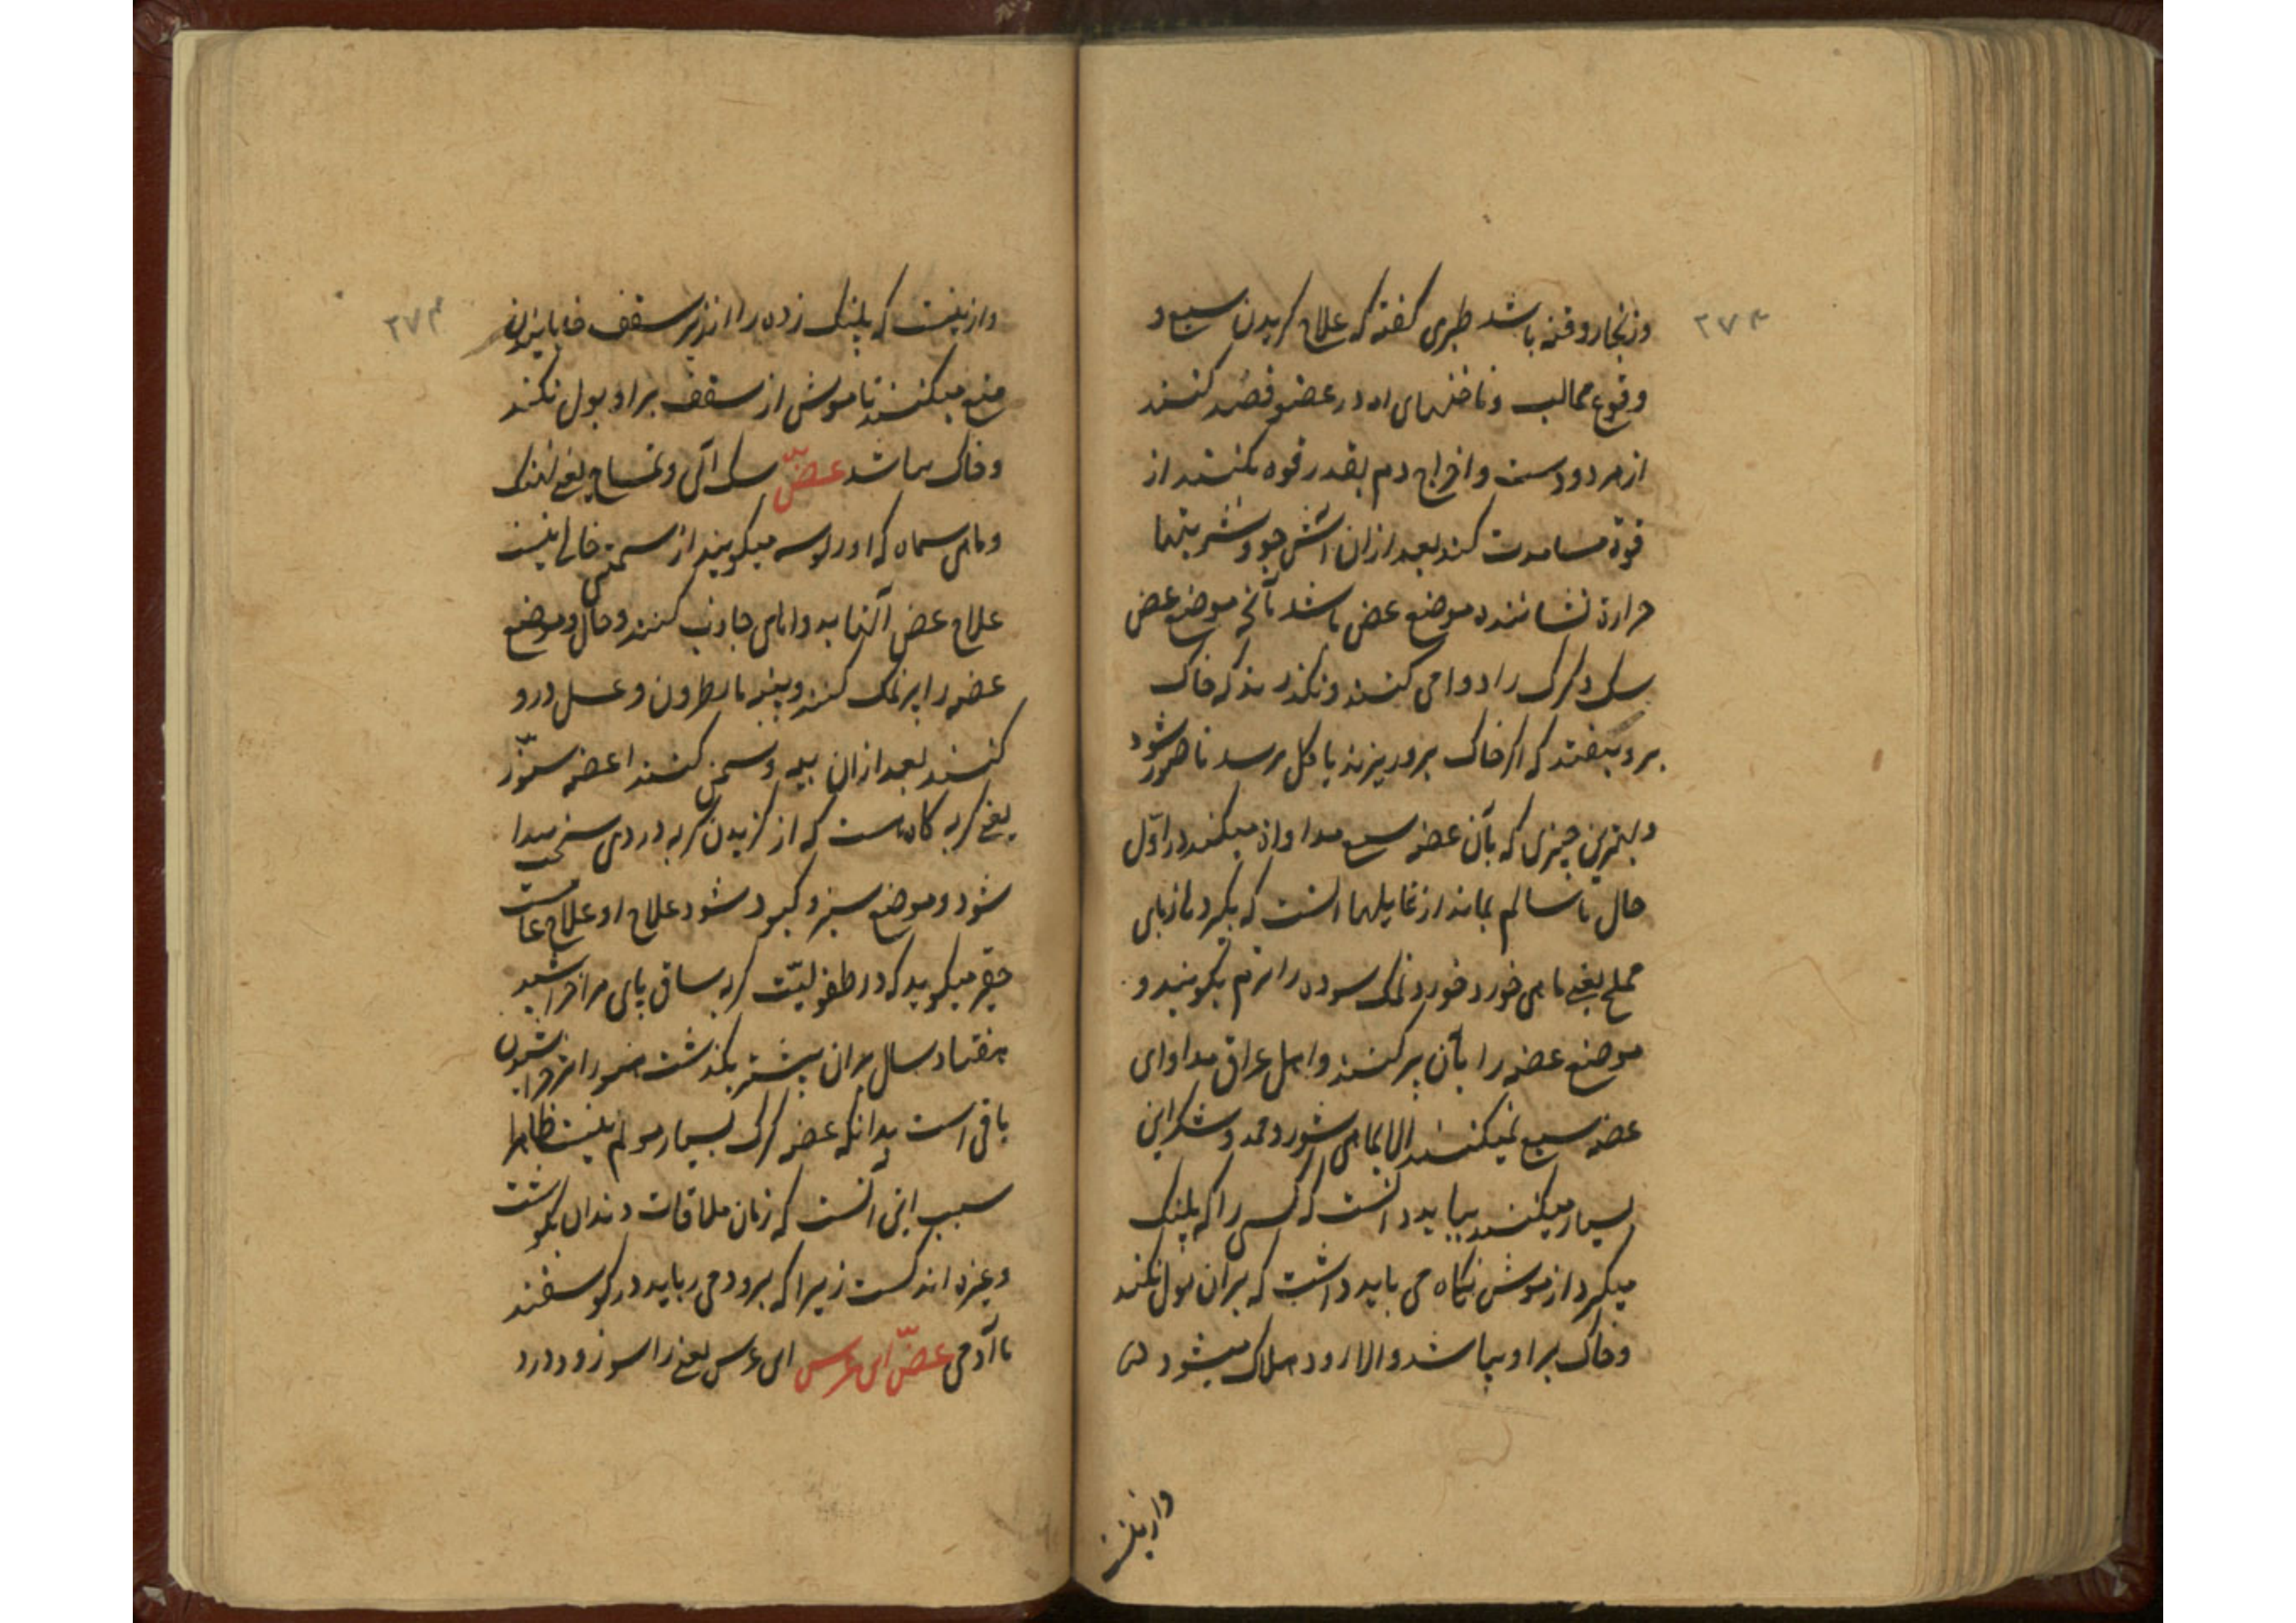 ۲۷۴
وزنجار و قنه باشد طبری گفته که علاج گزیدن سبع و
وقوع مخالب و ناخنهای او در عضو فصد کنند
از هر دو دست و اخراج دم بقدر قوه کنند از
قوة مساعدت کند بعد از آن آتش جو و شربتها
حرارة نشاننده موضع عض باشد تا آنکه موضع عض
سک و کرک را دوا می کنند و نکذارند که خاک
برو بیفتد که اکر خاک برو ریزند یا کل برسد ناصور شود
و بهترین چیزی که بآن عضه سبع مداواة میکنند در اول
حال تا سالم بماند از غایلها آنست که بگیرد ماهی
مملح یعنی ماهی خورد خورد نمک سوده را نرم بکوبند و
موضع عضه را بآن پر کنند و اهل عراق مداوای
عضه سبع نمیکنند الا بماهی شور و حمد و شکر این
بسیار میکنند بباید دانست که کسی را که پلنک
میکیرد از موش نکاه می باید داشت که بران بول نکند
و خاک بر او نپاشد والا زود هلاک میشود
وازینست
۲۷۴
وازینست که پلنک زده را از زیر سقف خانها بیرون
منع میکنند تا موش از سقف بر او بول نکند
و خاک نپاشد عضّ سک آبی و تمساح یعنی نهنک
و ماهی سیاه که او را لوسه میکویند از سمیتی خالی نیست
علاج عض آنها بدواهای جاذب کنند و حال و موضع
عضه را پر نمک کنند و پنبه با نطرون و عسل درو
کنند بعد از آن پیه و سمن کنند اعضه سنّور
یعنی کربه کاه هست که از کزیدن کربه دردی سخت پیدا
شود و موضع سبز و کبود شود علاج او علاج عامست
حقیر میکوید که در طفولیّت کربه ساق پای مرا خراشید
هفتاد سال بران بیشتر بکذشت هنوز اثر خراشیدن
باقی است بدانکه عضه کرک بسیار مولم نیست ظاهرا
سبب این آنست که زمان ملاقات دندان بکوشت
و غیره اندکست زیرا که برودمی رباید در کوسفند
تا آدمی عضّ ابن عرس ابن عرس یعنی راسو زود درد